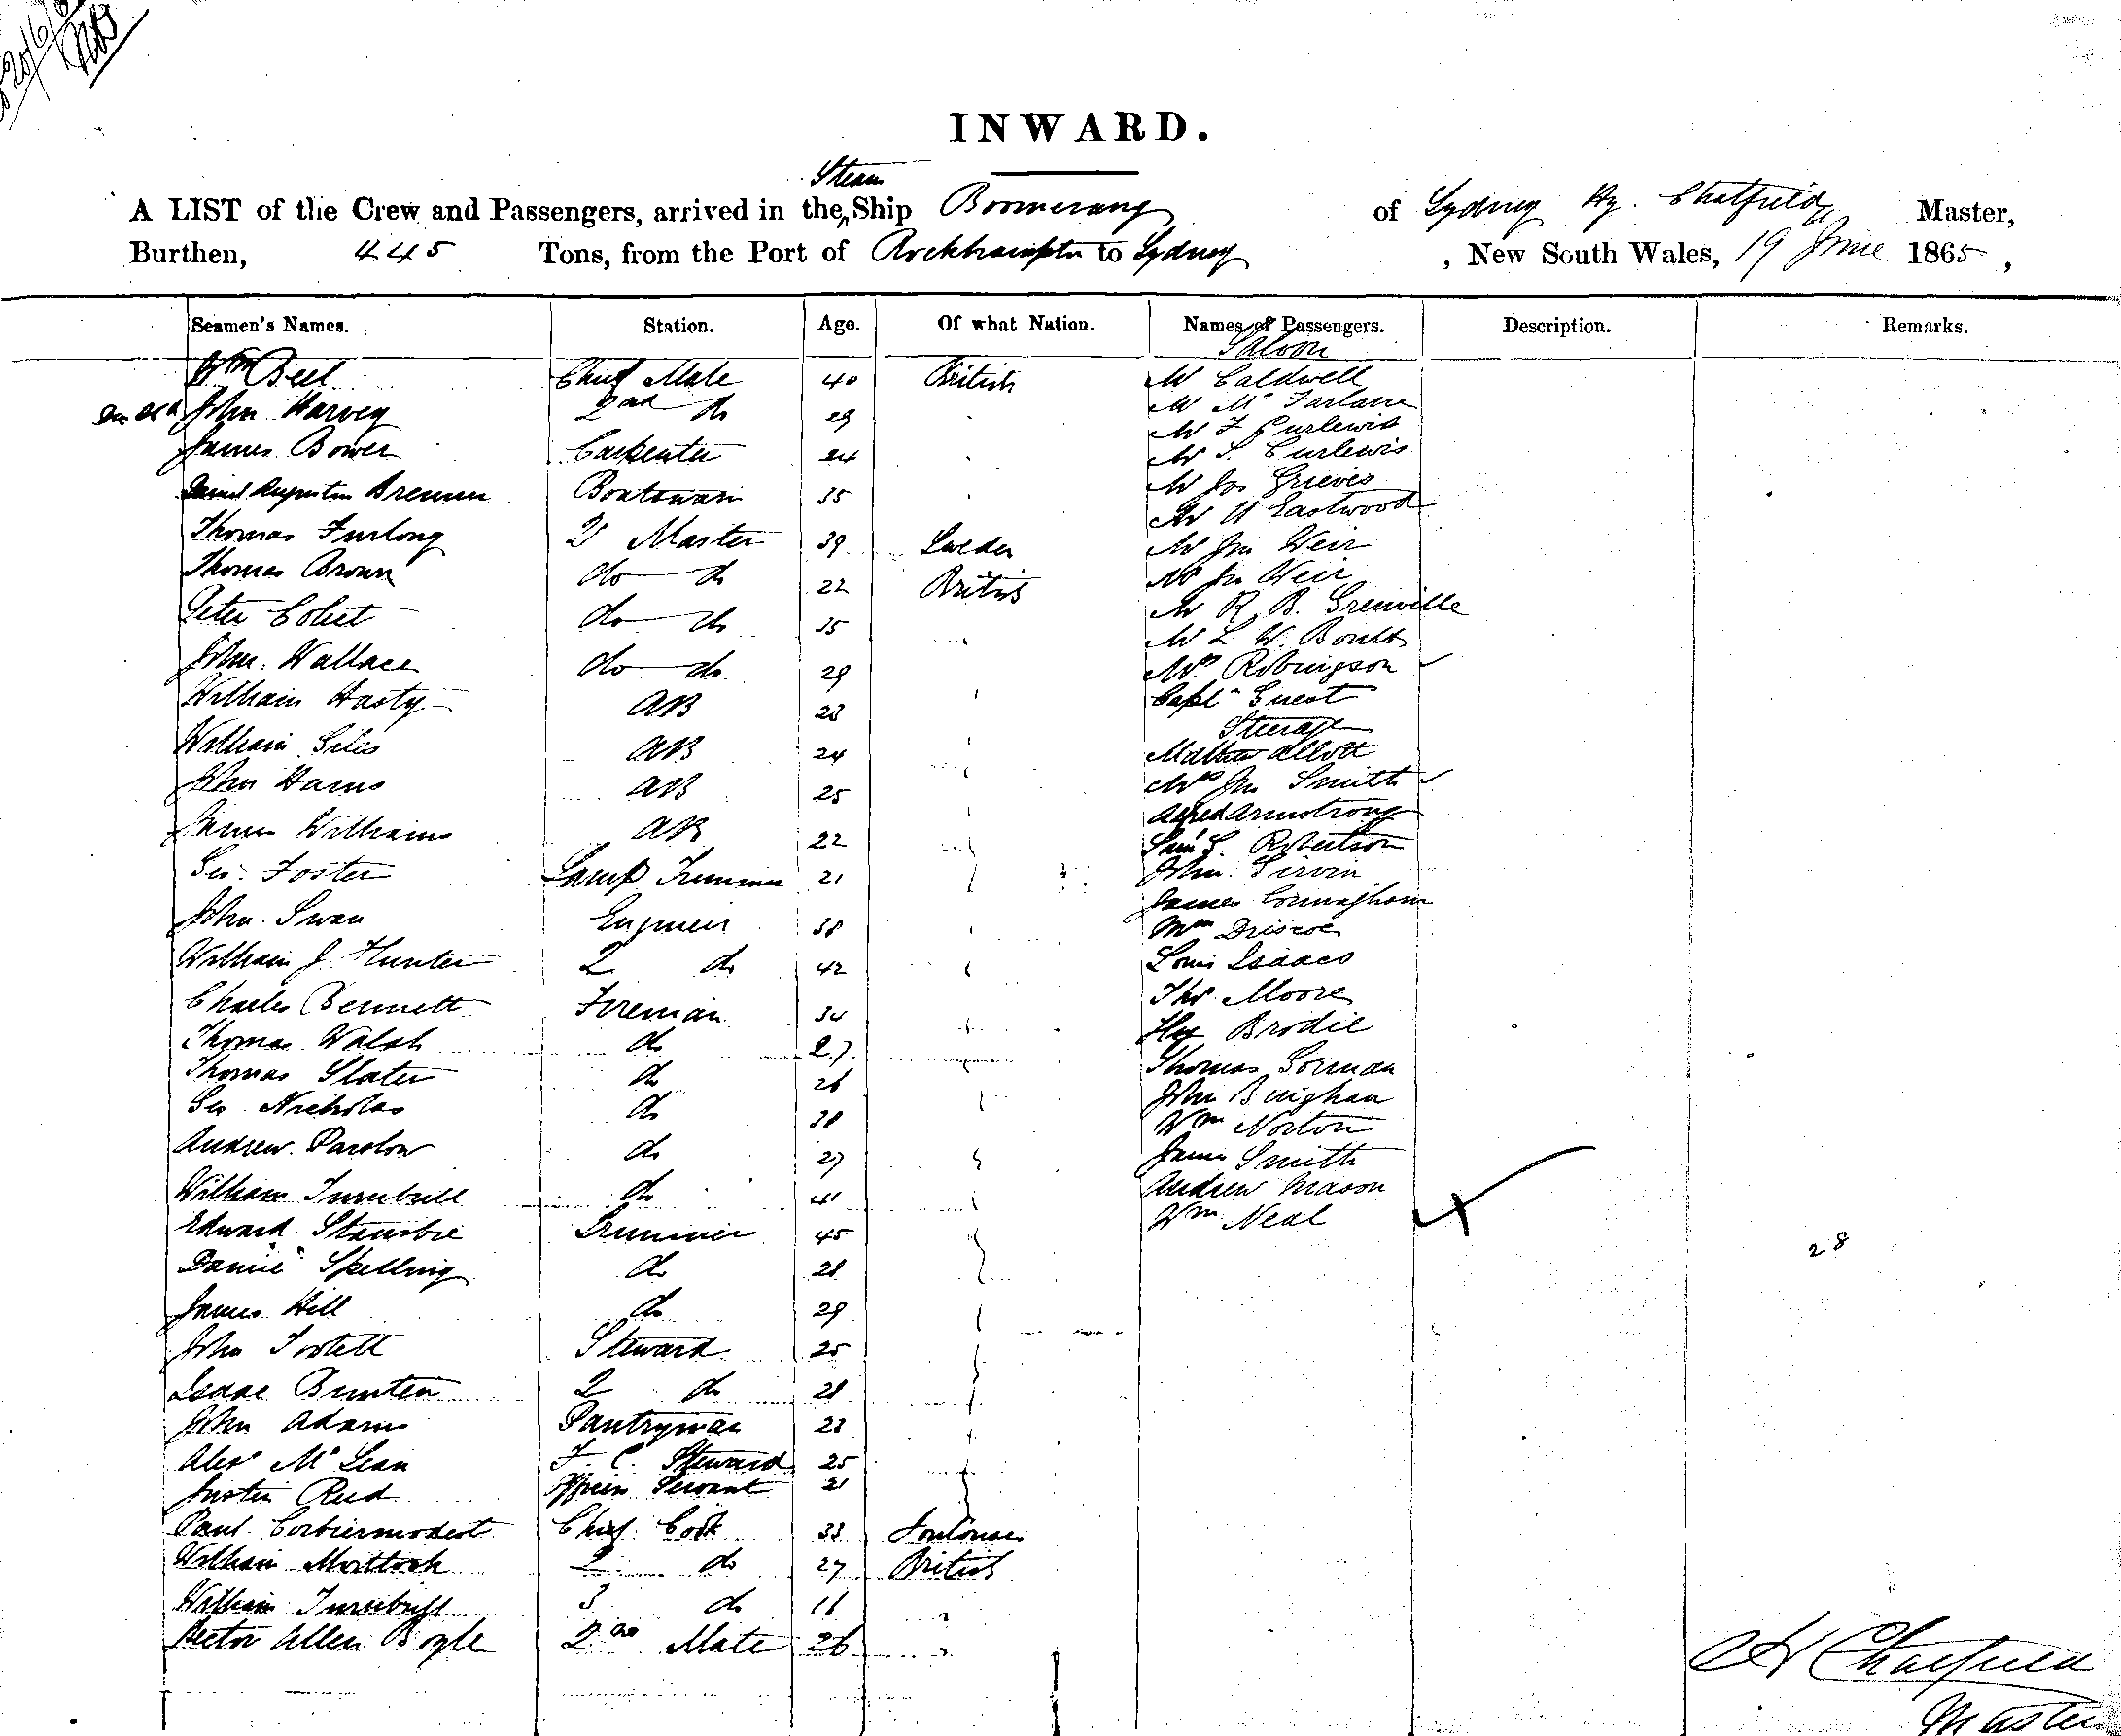 INWARD.
Steam
A LIST of the Crew and Passengers, arrived in the Ship Boomerang of Sydney Hy. Chatfield, Master,
Burthen, 445 Tons, from the Port of Rockhampton to Sydney, New South Wales, 19 June 1865,
Seamen's Names. Station. Age. Of what Nation. Names of Passengers. Description. Remarks.
Saloon
Wm Bell Chief Mate 40 British Mr Caldwell
John Harvey 2nd do 29 Mr McFarlane
Mr F Curlewis
James Bower Carpenter 24 Mr S. Curlewis
Brennen Boatswain 35 Mr Jos Grieves
Mr H Eastwood
Thomas Furlong Q Master 39 Sweden Mr Jno Weir
Thomas Brown do do 22 British Jno Weir
Peter do do 35 Mr R. B. Grenville
Mr L. W. Boults
John Wallace do do 29 Robingson
William Hasty AB 23 Capt Guest
Steerage
William Giles AB 24 Matthew
John Harris AB 25 Mrs Jno Smith
Alfred Armstrong
James Williams AB 22 Saml S. Robertson
Geo. Foster Lamp Trimmer 21 John
James Conningham
John Swan Engineer 38 Wm
William J. Hunter 2 do 42 Louis Isaacs
Charles Bennett Fireman 34 Thos Moore
Thomas Walsh do 27 Hy Brodie
Thomas Slater do 26 Thomas Gorman
Geo Nicholas do 38 John Bingham
Wm Norton
Andrew Parslow do 27 James Smith
William Turnbull do 41 Andrew Mason
Edward Stansbie Trimmer 45 Wm Neal
28
Daniel Spelling do 28
James Hill do 29
John Steward 25
Isaac Bunten 2 do 28
John Adams Pantryman 23
Alexr McLean F. C. Steward 25
Justin Reid Servant 21
Paul Chief Cook 33
William Mortlock 2 do 27 British
William Turnbull 3 do
Hector Allen Boyle 2nd Mate 26
H Chatfield
Master